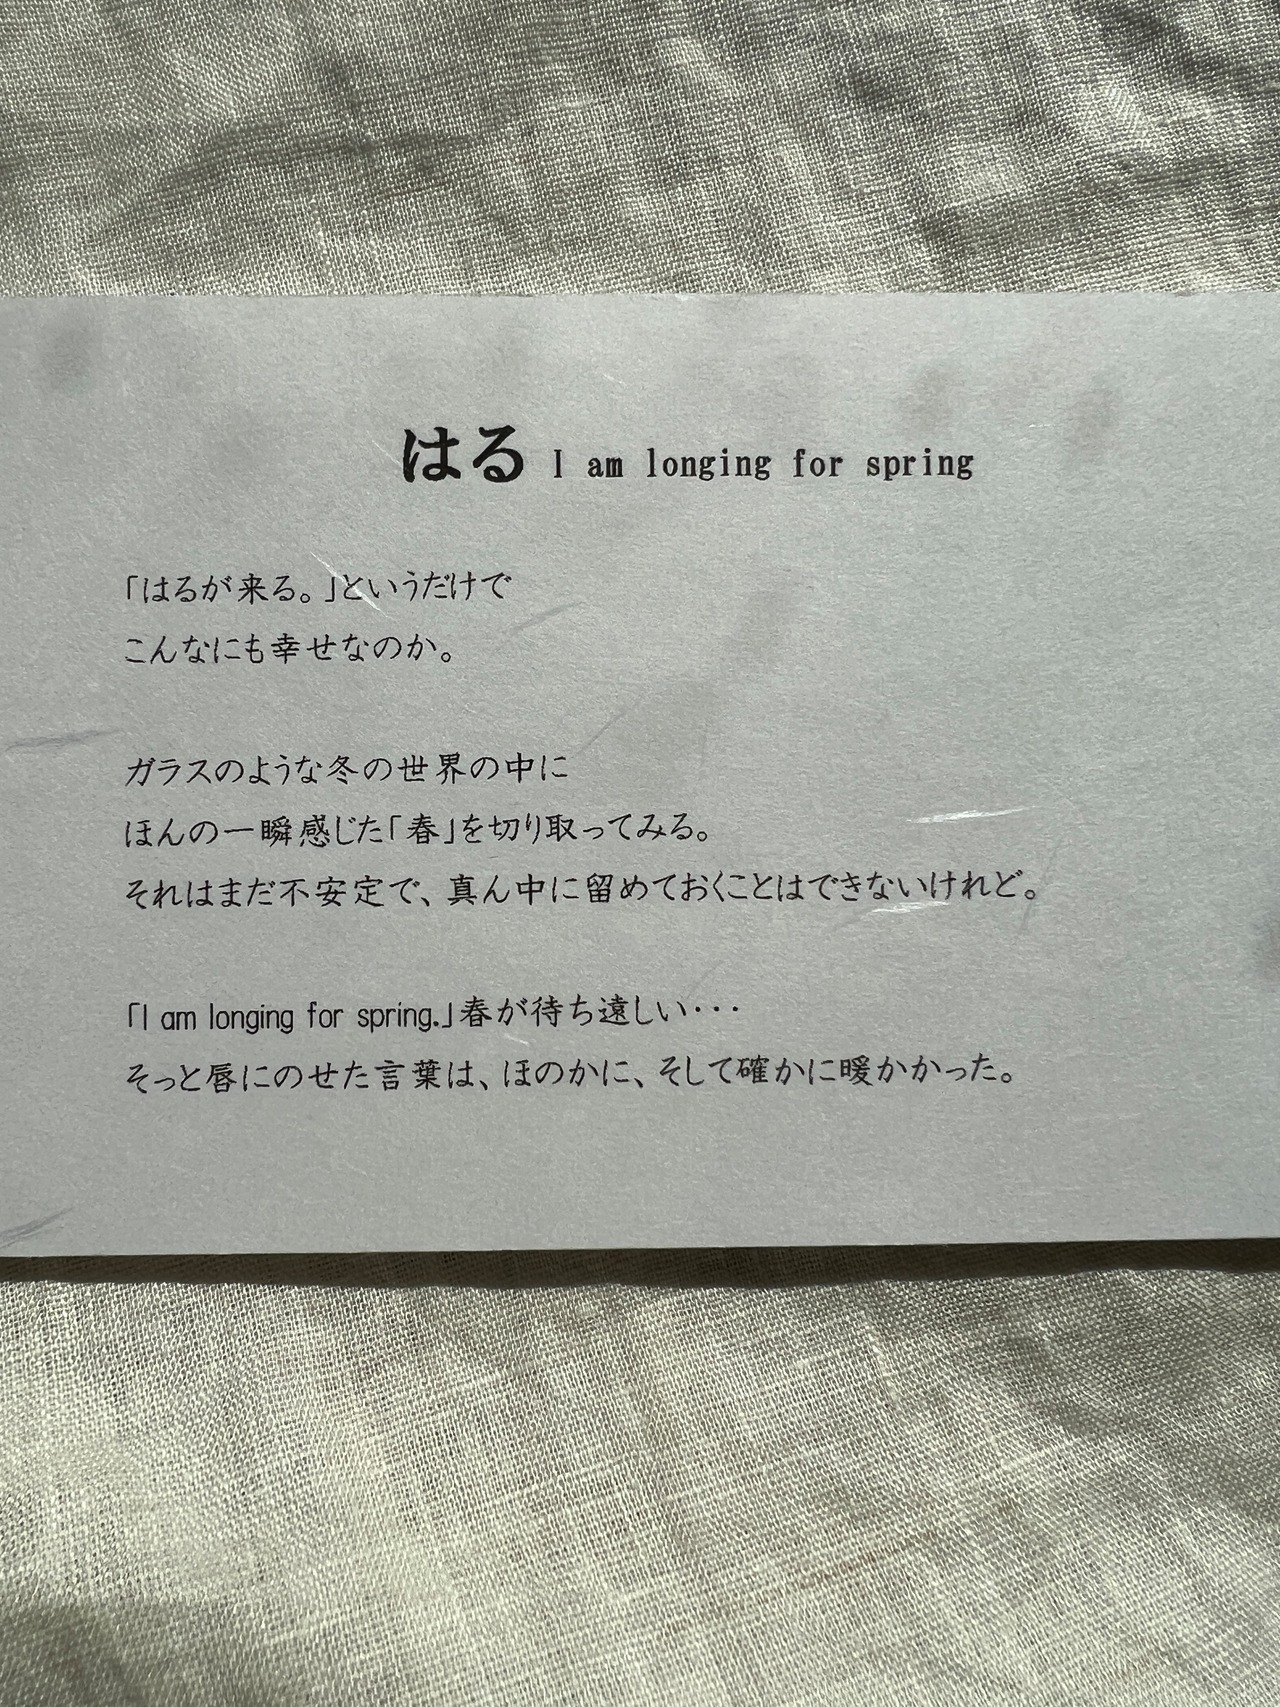 はる I am longing for spring
「はるが来る。」というだけで
こんなにも幸せなのか。
ガラスのような冬の世界の中に
ほんの一瞬感じた「春」を切り取ってみる。
それはまだ不安定で、真ん中に留めておくことはできないけれど。
「I am longing for spring.」春が待ち遠しい・・・
そっと唇にのせた言葉は、ほのかに、そして確かに暖かかった。